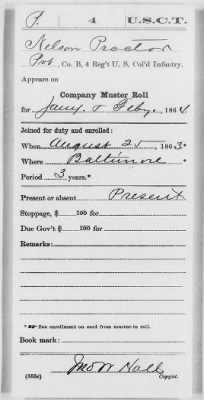 P. 4 U.S.C.T.
Nelson Proctor
Pvt, Co. B, 4 Reg't U. S. Col'd Infantry.
Appears on
Company Muster Roll
for Jany. & Feby., 1864.
Joined for duty and enrolled:
When August 25, 1863*
Where Baltimore
Period 3 years.*
Present or absent Present
Stoppage, $ 100 for
Due Gov't $ 100 for
Remarks:
* See enrollment on card from muster-in roll.
Book mark:
Jno W Hall
(358c) Copyist.